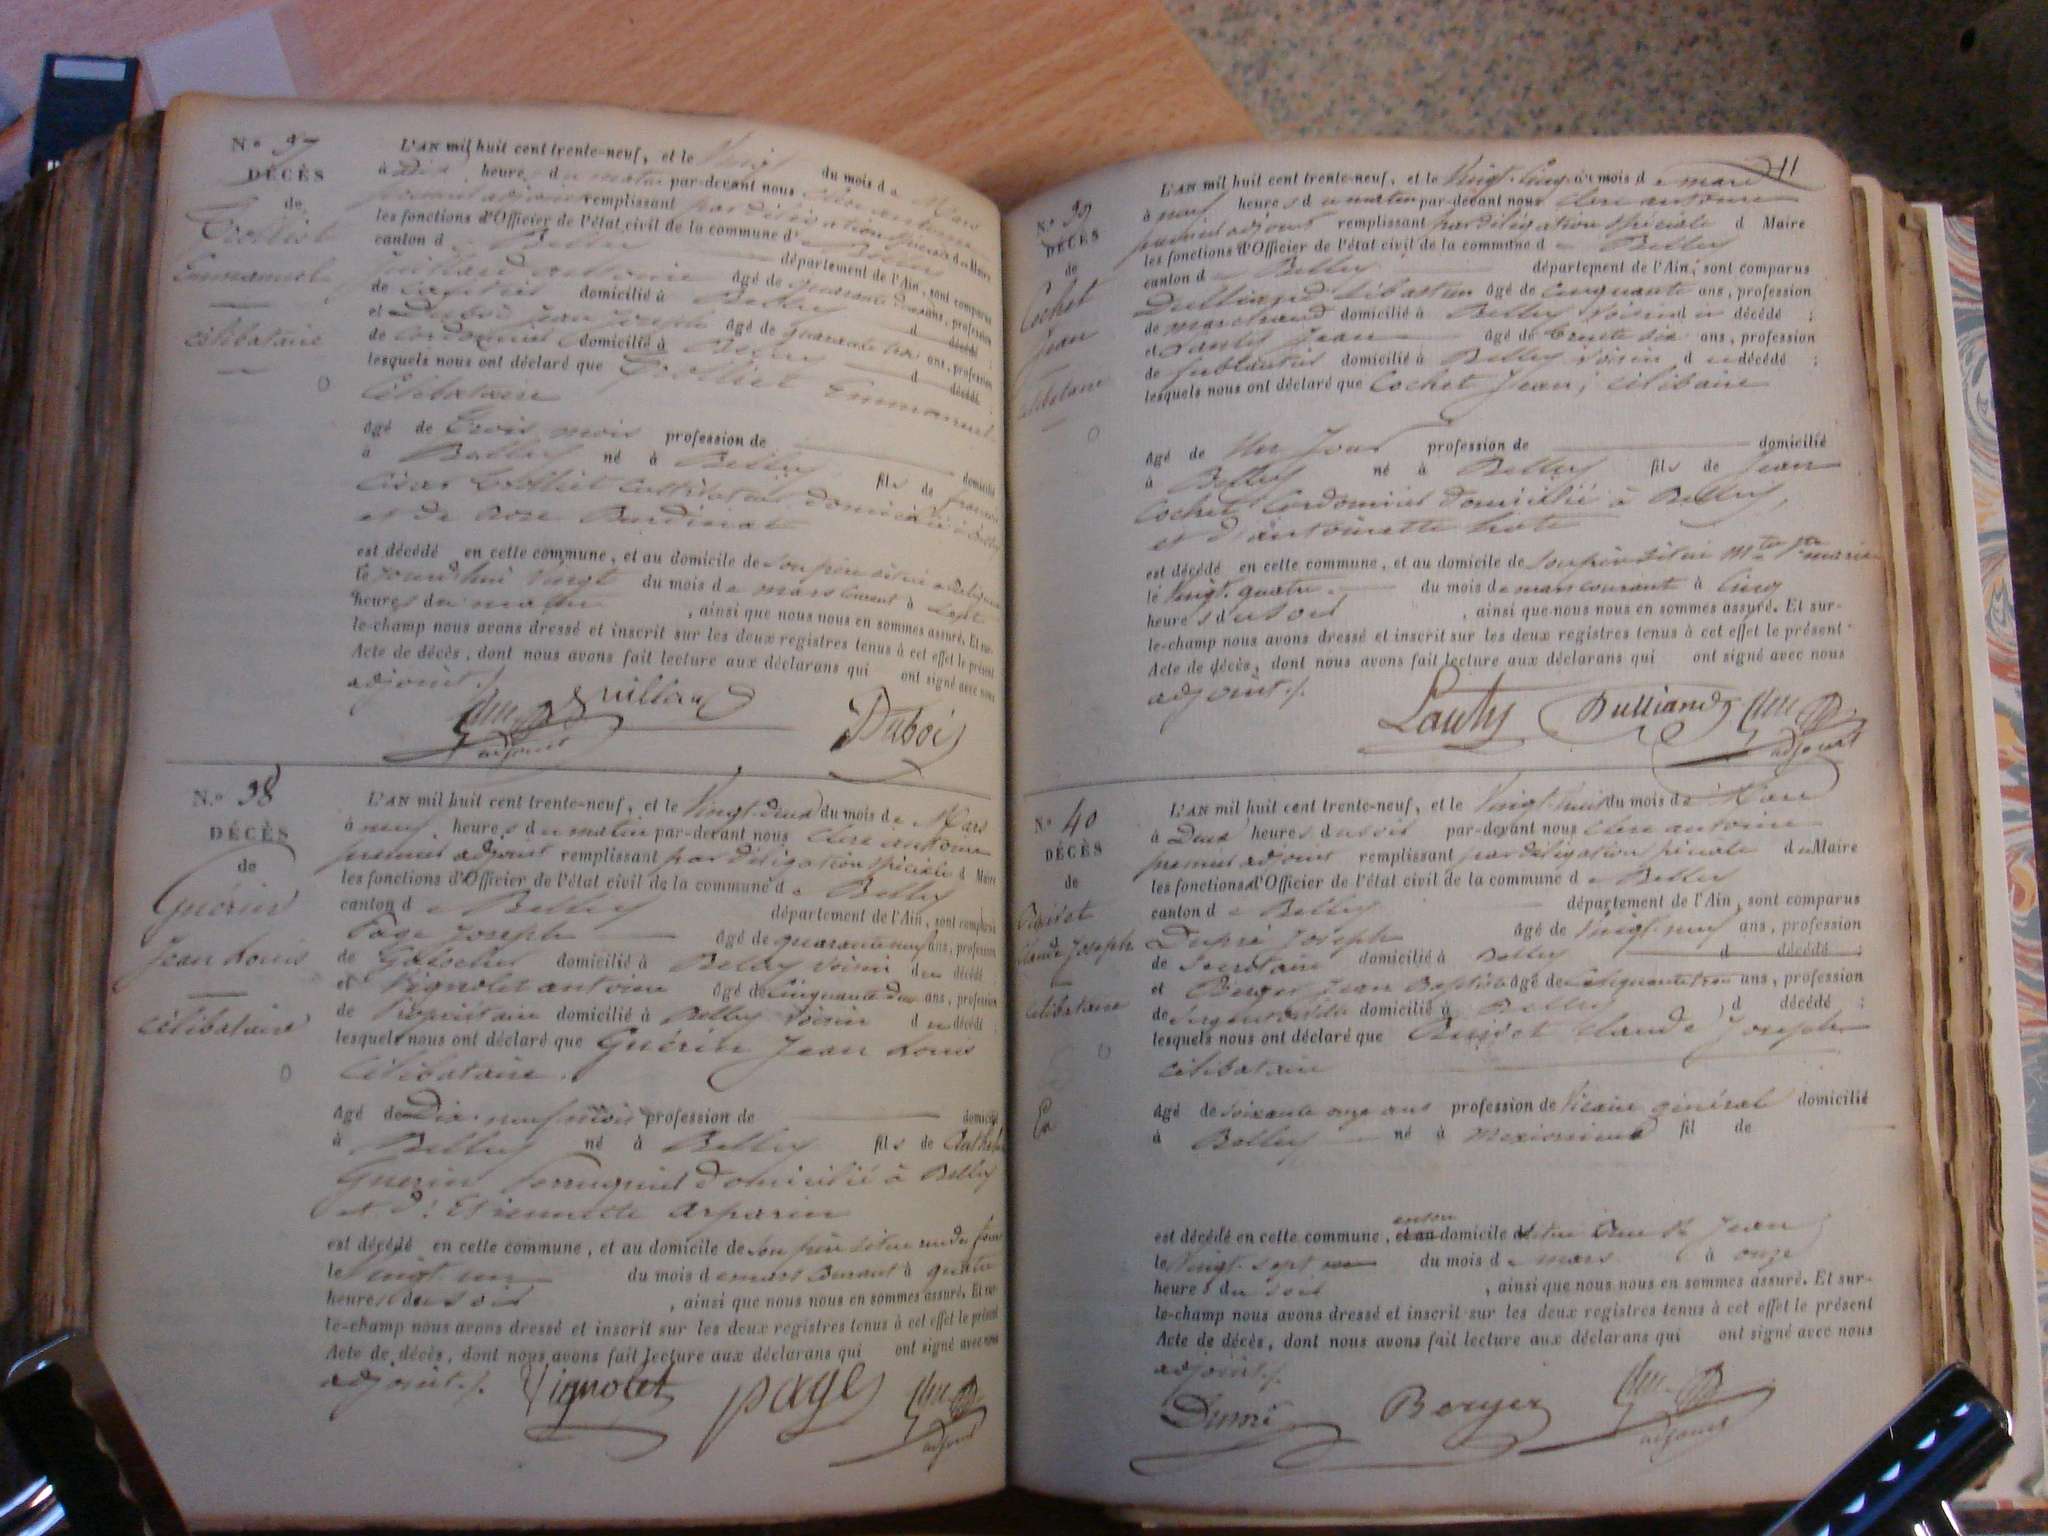 N.o 37
DÉCÈS
de
Trolliet
Emmanuel
célibataire
L'AN mil huit cent trente-neuf, et le Vingt du mois de Mars
à Dix heures du matin par-devant nous Clerc antoine
premier adjoint remplissant par délégation spéciale du Maire
les fonctions d'Officier de l'état civil de la commune de Belley
canton de Belley département de l'Ain, sont comparus
antoine âgé de quarante ans, profession
de domicilié à Belley d décédé ;
et Dubois Jean Joseph âgé de quarante trois ans, profession
de Cordonnier domicilié à Belley d décédé ;
lesquels nous ont déclaré que Trolliet Emmanuel
Célibataire
âgé de Trois mois profession de domicilié
à Belley né à Belley fils de françois
César Trolliet Cultivateur domicilié à Belley
et de Rose
est décédé en cette commune, et au domicile de son père situé
le jourd'hui Vingt du mois de mars Courant à Sept
heures du matin , ainsi que nous nous en sommes assuré. Et sur-
le-champ nous avons dressé et inscrit sur les deux registres tenus à cet effet le présent
Acte de décès, dont nous avons fait lecture aux déclarans qui ont signé avec nous
adjoint ./.
Dubois
adjoint
N.o 38
DÉCÈS
de
Guérin
Jean Louis
célibataire
L'AN mil huit cent trente-neuf, et le Vingt-deux du mois de Mars
à neuf heures du matin par-devant nous Clerc antoine
premier adjoint remplissant par délégation spéciale d Maire
les fonctions d'Officier de l'état civil de la commune de Belley
canton de Belley département de l'Ain, sont comparus
Page Joseph âgé de quarante neuf ans, profession
de Galochier domicilié à Belley voisin du décédé ;
et Vignolet antoine âgé de Cinquante deux ans, profession
de Propriétaire domicilié à Belley voisin d u décédé ;
lesquels nous ont déclaré que Guérin Jean Louis
Célibataire .
âgé de Dix-neuf mois profession de domicilié
à Belley né à Belley fils de
Guerin Perruquier domicilié à Belley
et d'Etiennette
est décédé en cette commune, et au domicile de son père situé rue du four
le Vingt un du mois de mars Courant à quatre
heures du soir , ainsi que nous nous en sommes assuré. Et sur-
le-champ nous avons dressé et inscrit sur les deux registres tenus à cet effet le présent
Acte de décès, dont nous avons fait lecture aux déclarans qui ont signé avec nous
adjoint ./.
Vignolet page
adjoint
11
N.o 39
DÉCÈS
de
Cochet
Jean
célibataire
L'AN mil huit cent trente-neuf, et le Vingt-Cinq du mois de mars
à neuf heures du matin par-devant nous Clerc antoine
premier adjoint remplissant par délégation spéciale d Maire
les fonctions d'Officier de l'état civil de la commune de Belley
canton de Belley département de l'Ain, sont comparus
Dulliand Sébastien âgé de Cinquante ans, profession
de marchand domicilié à Belley voisin d u décédé ;
et Lauty Jean âgé de trente six ans, profession
de ferblantier domicilié à Belley voisin d u décédé ;
lesquels nous ont déclaré que Cochet Jean, célibaire
âgé de Un Jour profession de domicilié
à Belley né à Belley fils de Jean
Cochet Cordonnier domicilié à Belley,
et d'antoinette
est décédé en cette commune, et au domicile de son père situé
le Vingt-quatre du mois de mars courant à Cinq
heures du soir , ainsi que nous nous en sommes assuré. Et sur-
le-champ nous avons dressé et inscrit sur les deux registres tenus à cet effet le présent
Acte de décès, dont nous avons fait lecture aux déclarans qui ont signé avec nous
adjoint ./.
Lauty Dulliand
adjoint
N.o 40
DÉCÈS
de
Claude Joseph
célibataire
L'AN mil huit cent trente-neuf, et le Vingt-huit du mois de Mars
à Deux heures du soir par-devant nous Clerc antoine
premier adjoint remplissant par délégation spéciale du Maire
les fonctions d'Officier de l'état civil de la commune de Belley
canton de Belley département de l'Ain, sont comparus
Dupré Joseph âgé de Vingt-neuf ans, profession
de Secrétaire domicilié à Belley d décédé ;
et Berger Jean Baptiste âgé de Cinquante trois ans, profession
de domicilié à Belley d décédé ;
lesquels nous ont déclaré que Claude Joseph
célibataire
âgé de soixante onze ans profession de Vicaire général domicilié
à Belley né à Meximieux fil de
est décédé en cette commune, et au domicile situé rue St Jean
le Vingt-sept du mois de mars à onze
heures du soir , ainsi que nous nous en sommes assuré. Et sur-
le-champ nous avons dressé et inscrit sur les deux registres tenus à cet effet le présent
Acte de décès, dont nous avons fait lecture aux déclarans qui ont signé avec nous
adjoint ./.
Dupré Berger
adjoint